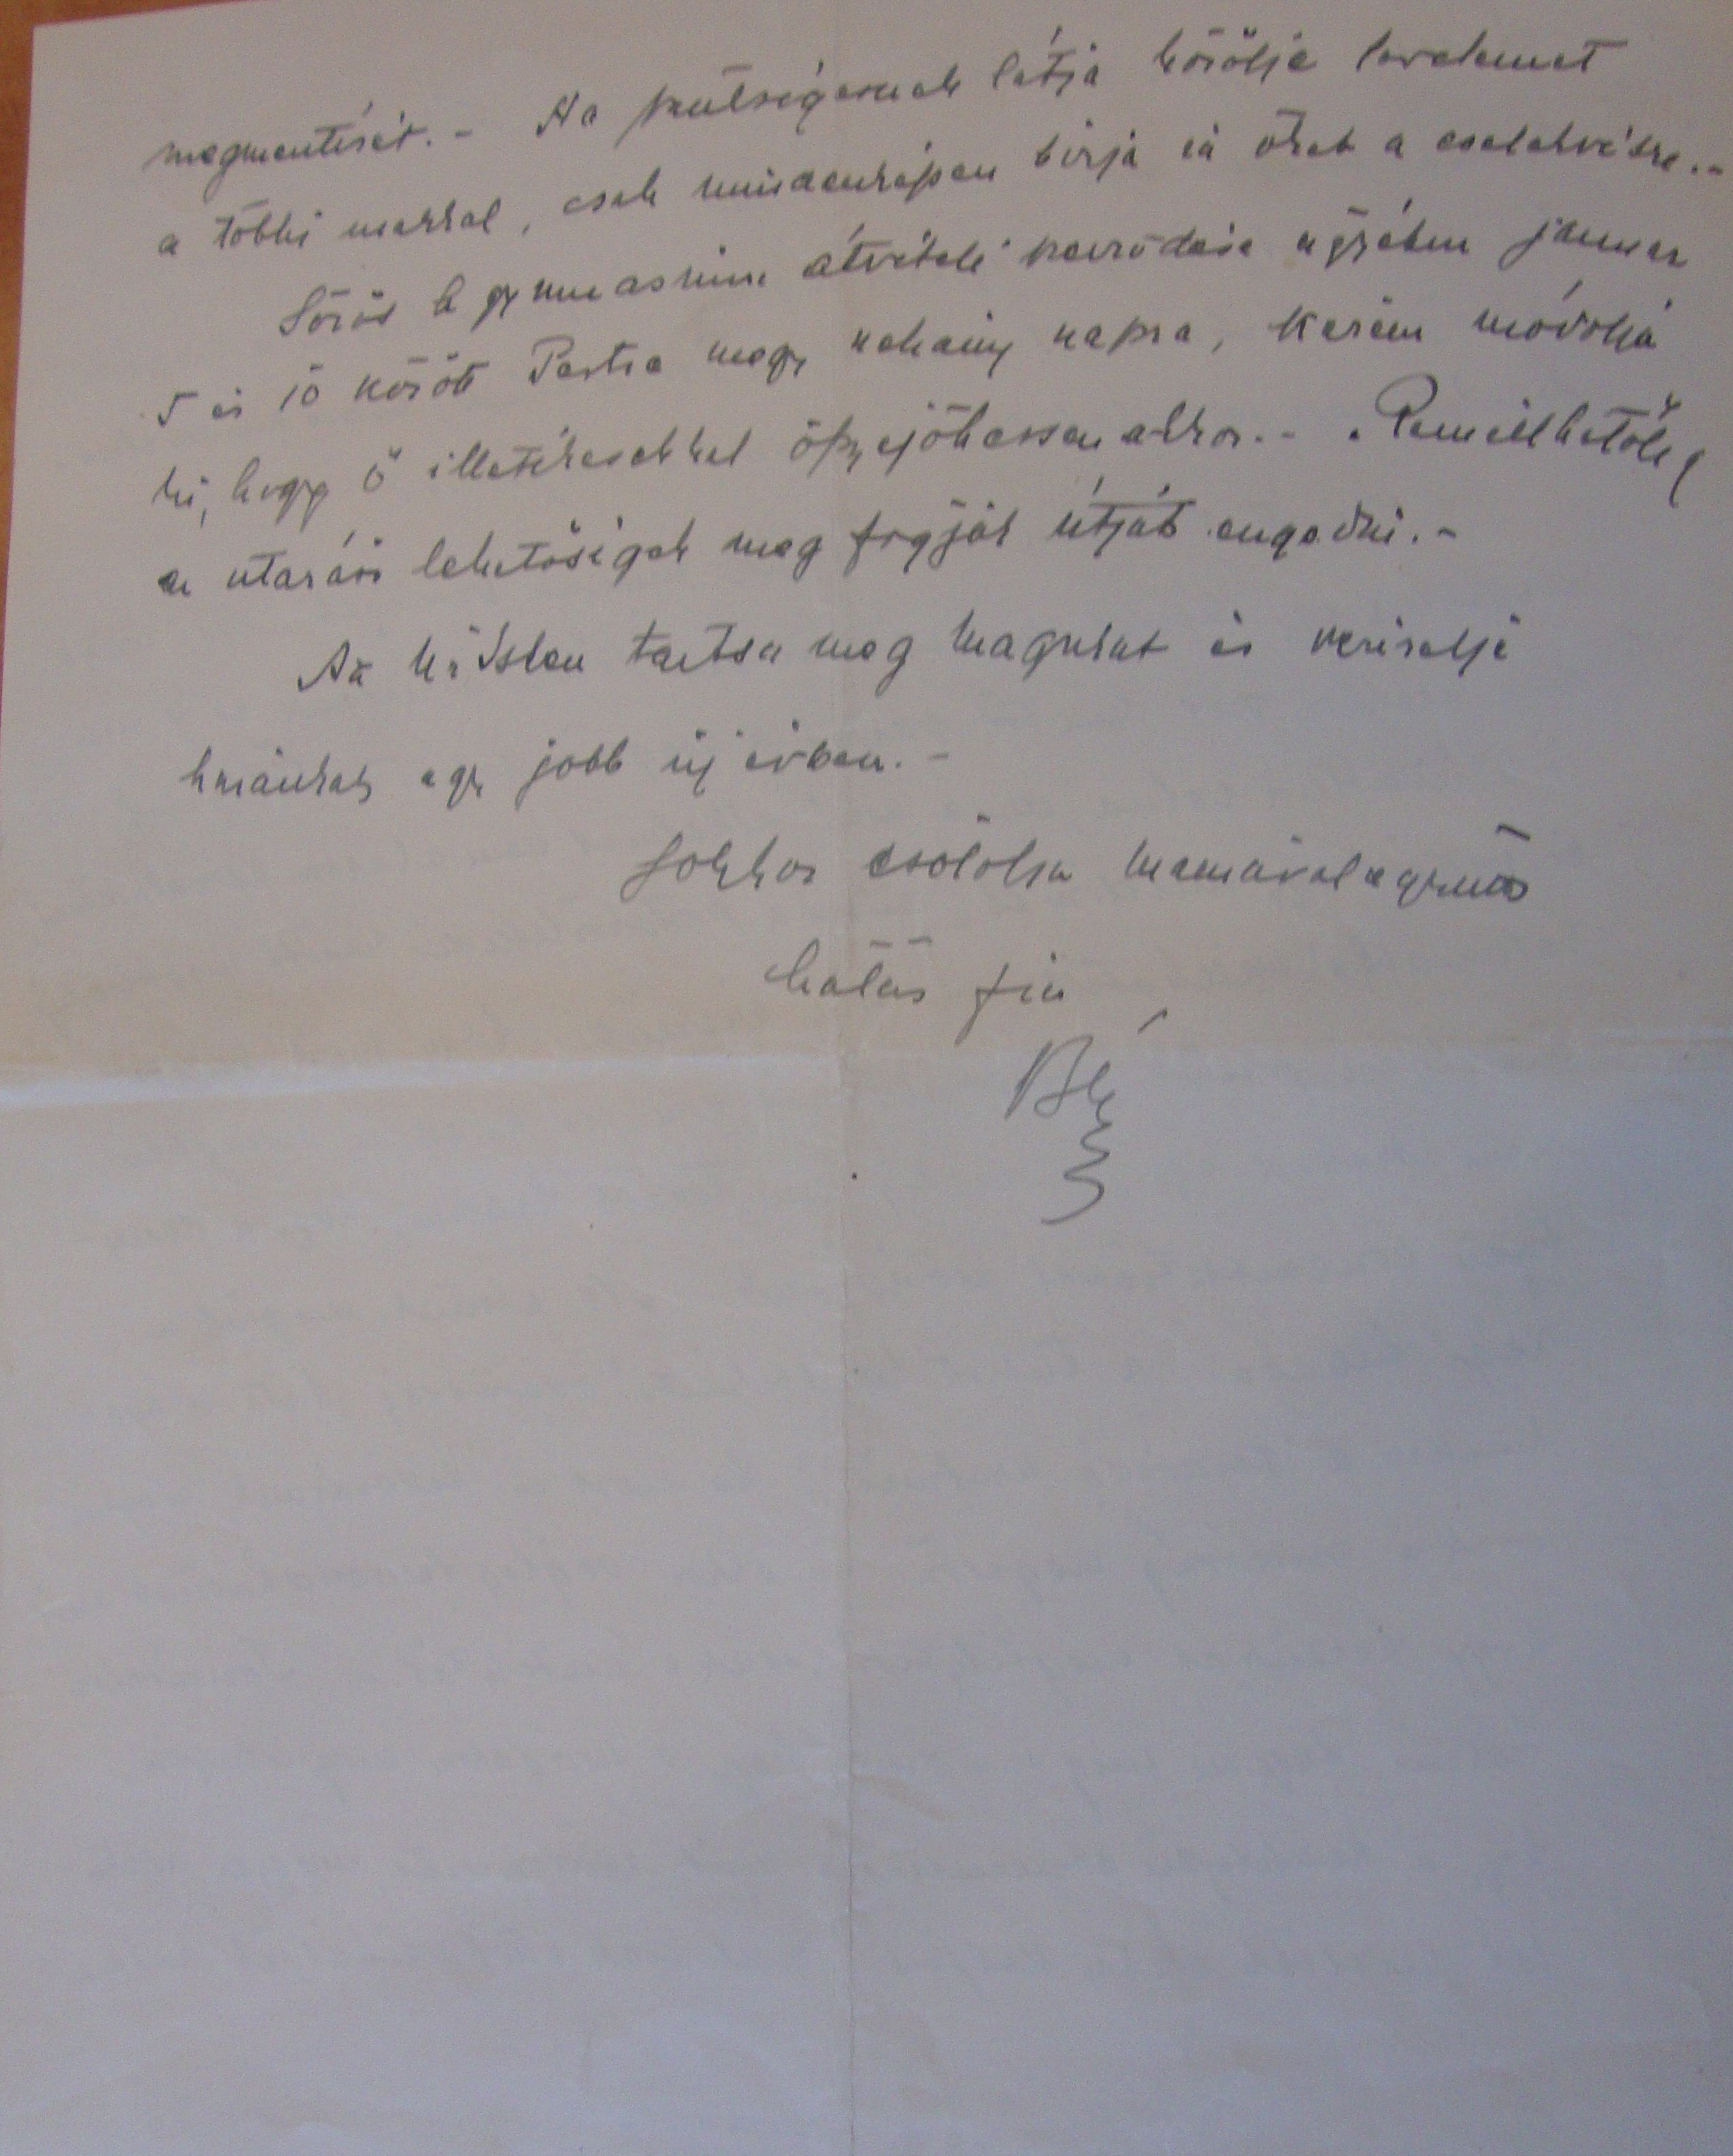 megmentését. - Ha szükségesnek látja közölje levelemet
a többi urakkal, csak mindenképen bírja rá őket a cselekvésre. -
Sörös a gymnasium átvételi ügyében január
5 és 10 között Pestre megy néhány napra, kérem módolja
ki, hogy ő illetékesekkel összejöhessen akkor. - Remélhetőleg
az utazási lehetőségek meg fogják útját engedni. -
Az Úr Isten tartsa meg magukat és vezérelje
hazánkat egy jobb új évben. -
Sokszor csókolja mamával együtt
hálás fia